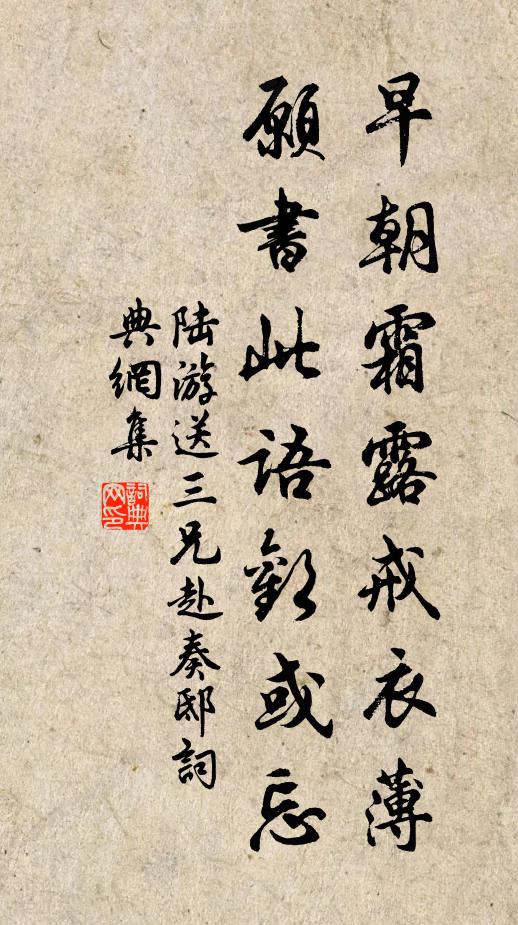 早朝霜露戒衣薄
願書此語或忘
陸游送三兄赴奏邸詞
典網集
詞典
网印